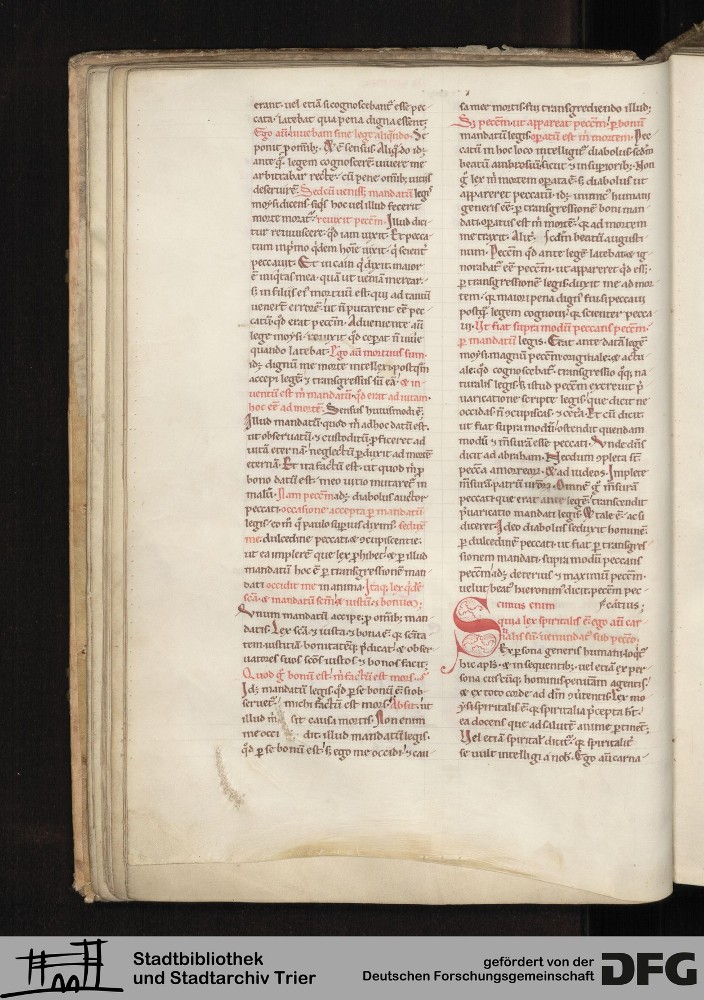 erant. uel etiā si cognoscebant̄ esse pec-
cata. latebat qua pena digna essent.
Ego aut̄ uiuebam sine lege aliqn̄do. Se
ponit p omīb;. & ē sensus. Aliqn̄do id;
anteq̄ legem cognoscerē. uiuere me
arbitrabar recte. cū pene omīb; uiciis
deseruirē. Sed cū uenisset mandatū legis
moysi dicens. siq̄s hoc uel illud fecerit
morte moriat̄. reuixit peccm̄. Illud dici
tur reuiuiscere. qd̄ iam uixit. Et pecca
tum in p̄mo qd̄em hoīe uixit. q̄ scient̄
peccauit. Et in cain q̄ dixit. maior
ē iniq̄tas mea. quā ut ueniā merear.
s; in filiis ei mortuū est. qui ad tantū
uener̄ errorē. ut n̄ putarent eē pec-
catū. qd̄ erat peccm̄. Adueniente aū
lege moysi. reuixit qd̄ cep̄at n̄ uiue
quando latebat. Ego aū mortuus sum.
id; dignū me morte intellexi. postq̄m
accepi legē & transgressus sū eā. & in
uentū est m̄ mandatū. qd̄ erat ad uitam.
hoc eē ad mortē. Sensus huiusmodi ē.
Illud mandatū. quod m̄ ad hoc datū est.
ut obseruatū & custoditū p̄ficeret ad
uitā eternā. neglectū p̄duxit ad mortē
eternā. Et ita factū est. ut quod m̄ p
bono datū est. meo uitio mutaret̄ in
malū. Nam peccm̄ id; diabolus auctor
peccati. occasione accepta p mandatū
legis. eo m̄ q̄ paulo sup̄ius diximus. seduxit
me. dulcedine peccati. & 9cupiscentie.
ut ea implerē que lex p̄hibet. & p illud
mandatū hoc ē p transgressionē man
dati occidit me in anima. Itaq; lex qd̄e
scā. & mandatū scm̄. & iustū. & bonū.
Vnum mandatū accipe. p omīb; man
datis. Lex scā & iusta & bona ē. q̄ scīta
tem. iustitiā. bonitatēq; p̄dicat. & obser
uatores suos scōs. iustos & bonos facit.
Quod g̊ bonū est. m̄ factū est mors.
Id; mandatū legis. qd̄ p se bonū ē si ob-
seruet̄. michi factū est mors. Absit. ut
illud m̄ sit causa mortis. Non enim
me occi dit. illud mandatū legis.
qd̄ p se bonū est. s; ego me occidi. & cau
sa mee mortis fui transgrediendo illud.
S; peccm̄. ut appareat peccm̄. p bonū
mandatū legis. op̄atū est m̄ mortem. Pec
catū in hoc loco intelligit̄ diabolus. scdm̄
beatū ambrosiū. sicut & in sup̄iorib;. Non
g̊ lex m̄ mortem op̄ata ē. s; diabolus ut
appareret peccatū. id; inimic̄ humani
generis eē. p transgressionē boni man
dati op̄atus est m̄ mortē. q̄ ad mortem
me traxit. Alit̄. scdm̄ beatū augusti
num. Peccm̄ qd̄ ante legē latebat. & ig
norabat̄ eē peccm̄. ut appareret qd̄ eēt;
p transgressionē legis. duxit me ad mor
tem. q̄ maiori pena dign̄ fui. si peccaui
postq̄ legem cognoui. q̄ scienter pecca
ui. Ut fiat supra modū peccans peccm̄.
p mandatū legis. Erat ante datā legē
moysi magnū peccm̄ originale. & actu
ale. qd̄ cognoscebat̄. transgressio q̄q; na
turalis legis. s; istud peccm̄ excreuit p̄
uaricatione scripte legis. que dicit ne
occidas. n̄ 9cupiscas. & cetā. Et cū dicit.
ut fiat supra modū. ostendit quendam
modū & m̄surā esse peccati. Vnde dn̄s
dicit ad abraham. Necdum 9pleta st̄
pecca amorreor. & ad iudeos. Implete
m̄surā patrū ur̄or. Omne g̊ m̄surā
peccati que erat ante legē. transcendit
p̄uaricatio mandati legis. & tale ē. ac si
diceret. Ideo diabolus seduxit hominē.
p dulcedinē peccati. ut fiat p transgres
sionem mandati. supra modū peccans
peccm̄. id; deterius & maximū peccm̄.
uel ut beat̄ hieronim̄ dicit. peccm̄ pec-
Scimus enim catius;
quia lex spiritalis ē. ego aū car
nalis sū. uenundat̄ sub peccō.
Ex p̄sona generis humani loq̄t̄
hic apłs. & in sequentib;. uel etiā ex per
sona cuiuscūq; hominis penitētiā agentis.
& ex toto corde ad dm̄ 9uertentis. Lex mo
ysi spiritalis ē. q̄ spiritalia p̄cepta ht̄.
ea docens que ad salutē anime p̄tinet.
Uel etiā spiritał dicit̄. q̄ spiritalit̄
se uult intelligi a nob̄. Ego aū carna-
Stadtbibliothek
und Stadtarchiv Trier
gefördert von der
Deutschen Forschungsgemeinschaft
DFG